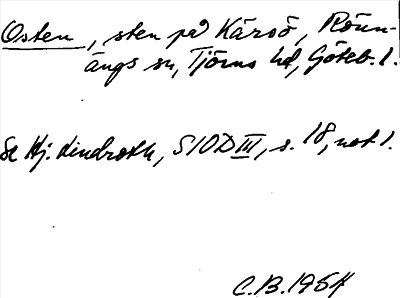 Osten, sten på Kårsö, Rönn-
ängs sn, Tjörns hd, Göteb. l.
Se Hj. Lindroth, SIOD III, s. 18, not 1.
C.B. 1964